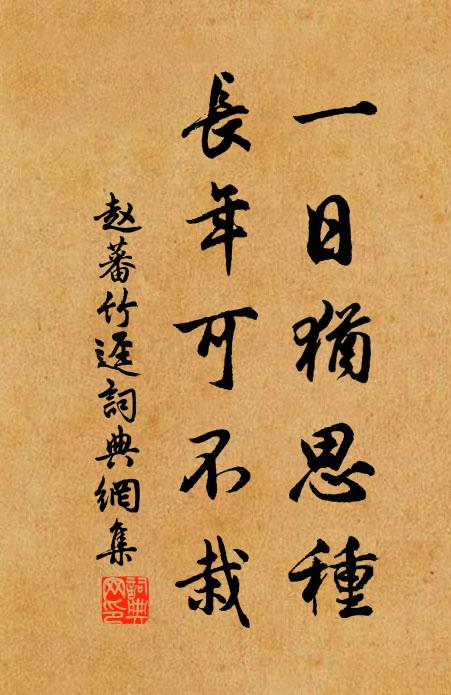 一日猶思種
長年可不栽
赵蕃竹逕詞典網集
詞典网印